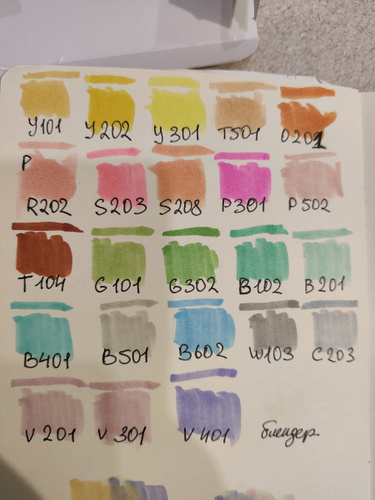 Y101 Y202 Y301 T501 O201
P
R202 S203 S208 P301 P502
T104 G101 G302 B102 B201
B401 B501 B602 W103 C203
V201 V301 V401 блендер